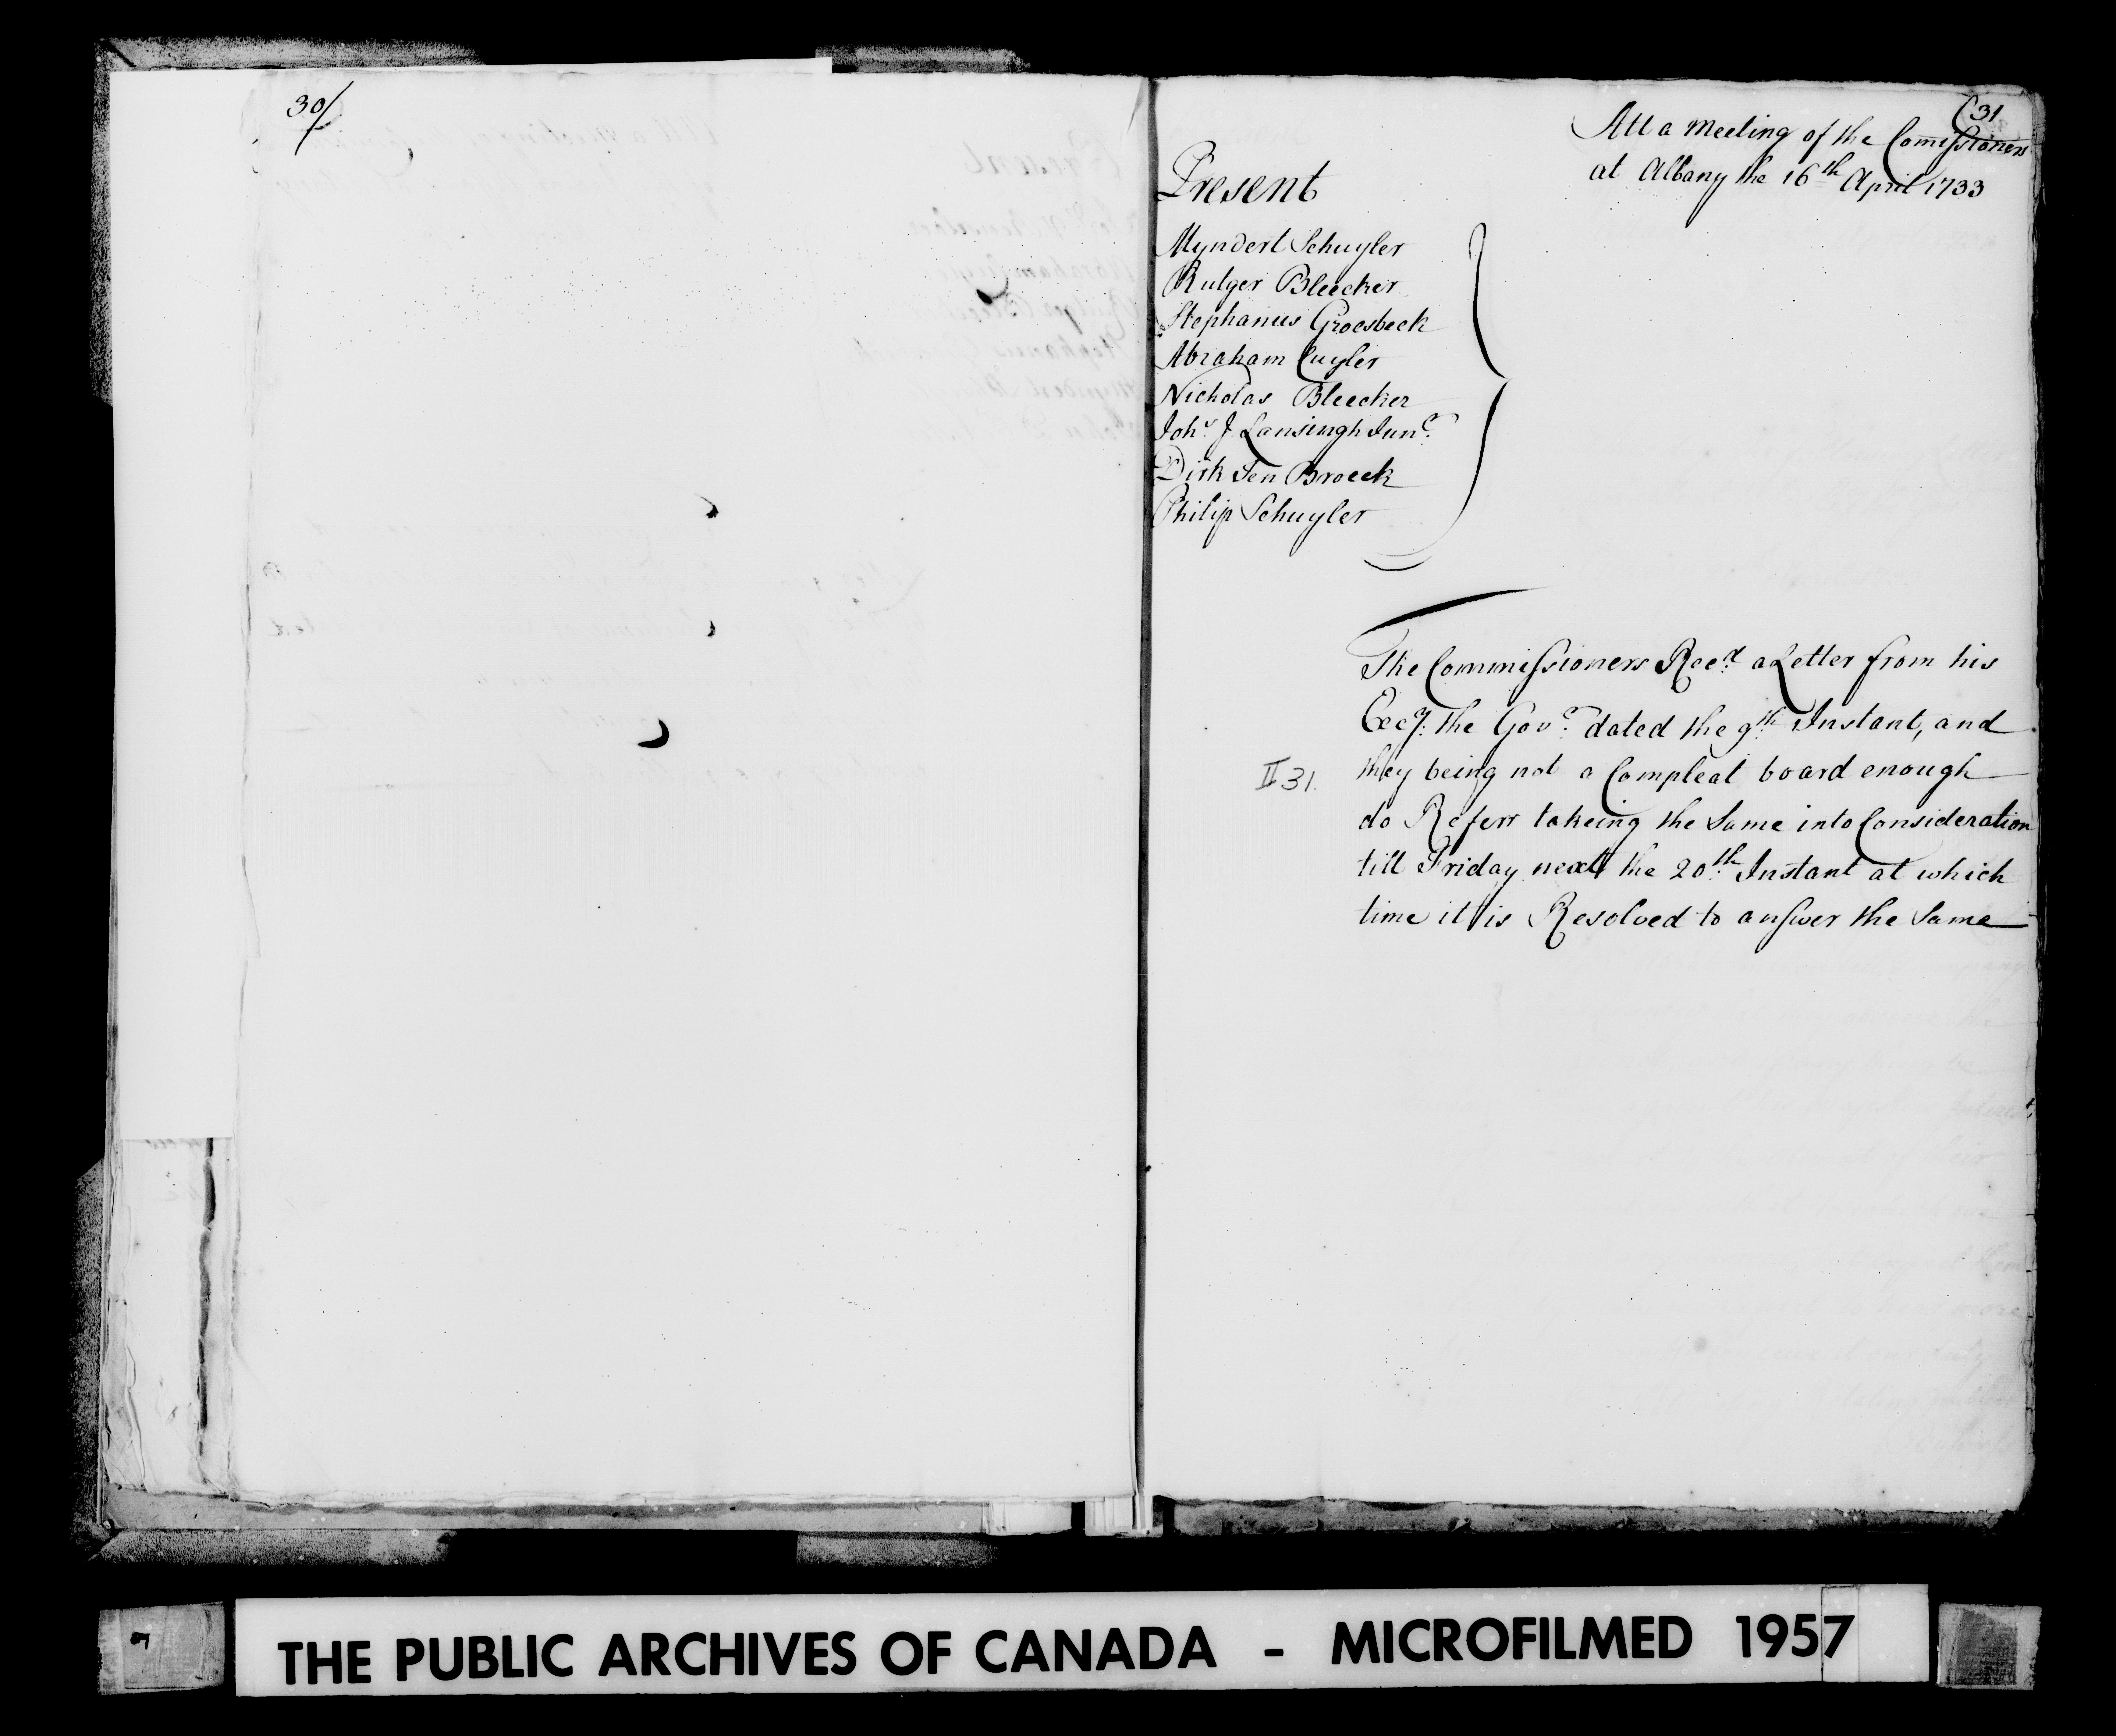 30/
31
Att a Meeting of the Comissioners
at Albany the 16th April 1733
Present
Myndert Schuyler
Rutger Bleecker
Stephanus Groesbeck
Abraham Cuyler
Nicholas Bleecker
Johs J Lansingh Junr.
Dirk Ten Broeck
Philip Schuyler
The Commissioners Recd. a Letter from his
Excy. the Govr. dated the 9th. Instant, and
they being not a Compleat board enough
II 31.
do Referr takeing the Same into Consideration
till Friday next the 20th. Instant at which
time it is Resolved to answer the Same
THE PUBLIC ARCHIVES OF CANADA - MICROFILMED 1957